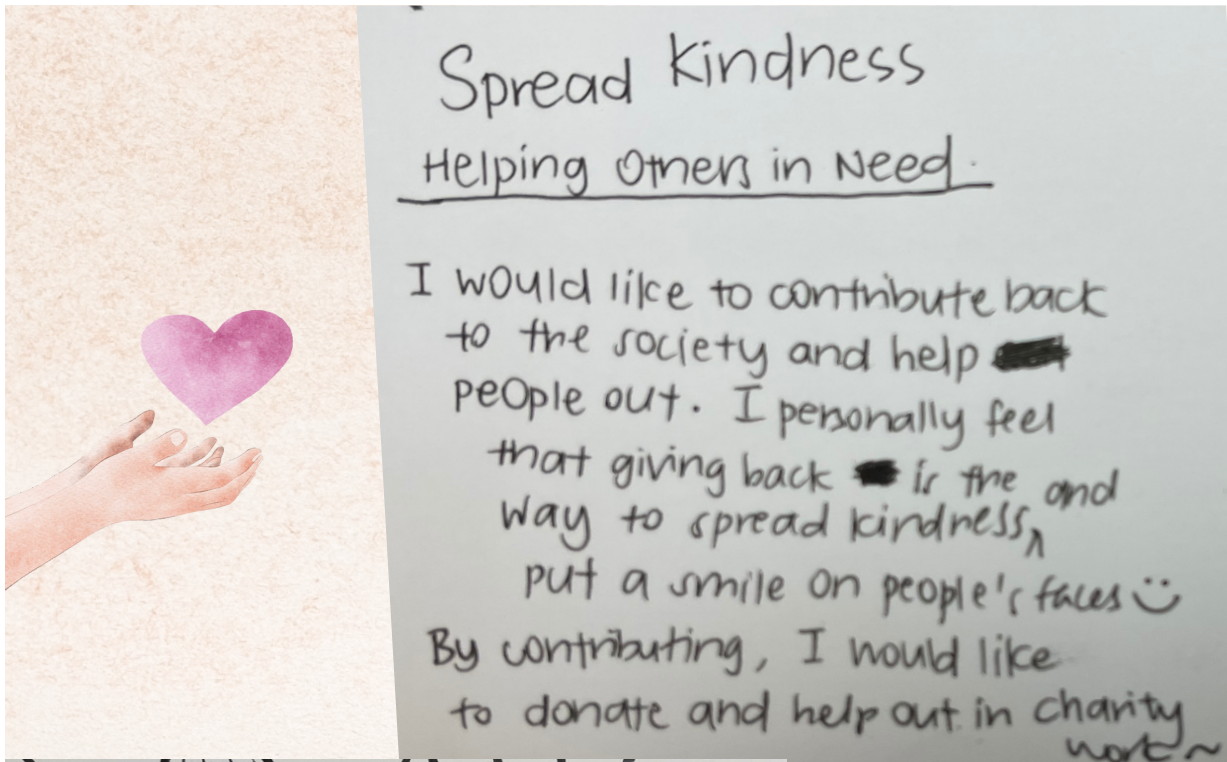 Spread Kindness
Helping Others in Need.
I would like to contribute back
to the society and help
people out. I personally feel
that giving back is the
way to spread kindness, and
put a smile on people's faces
By contributing, I would like
to donate and help out in charity
work~